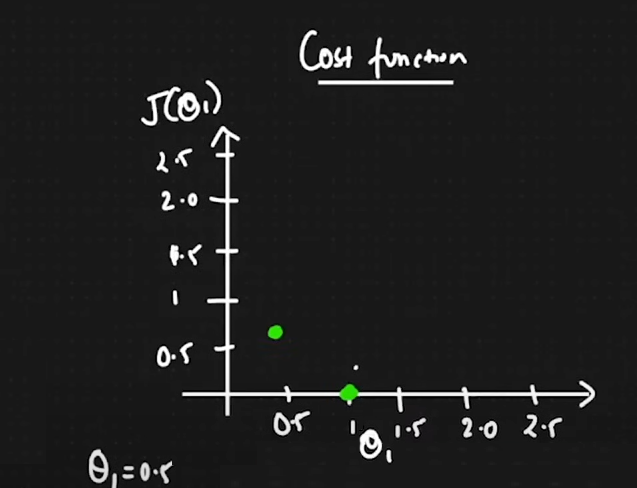 Cost function
J(θ₁)
2.5
2.0
1.5
1
0.5
0.5 1 1.5 2.0 2.5
θ₁
θ₁ = 0.5